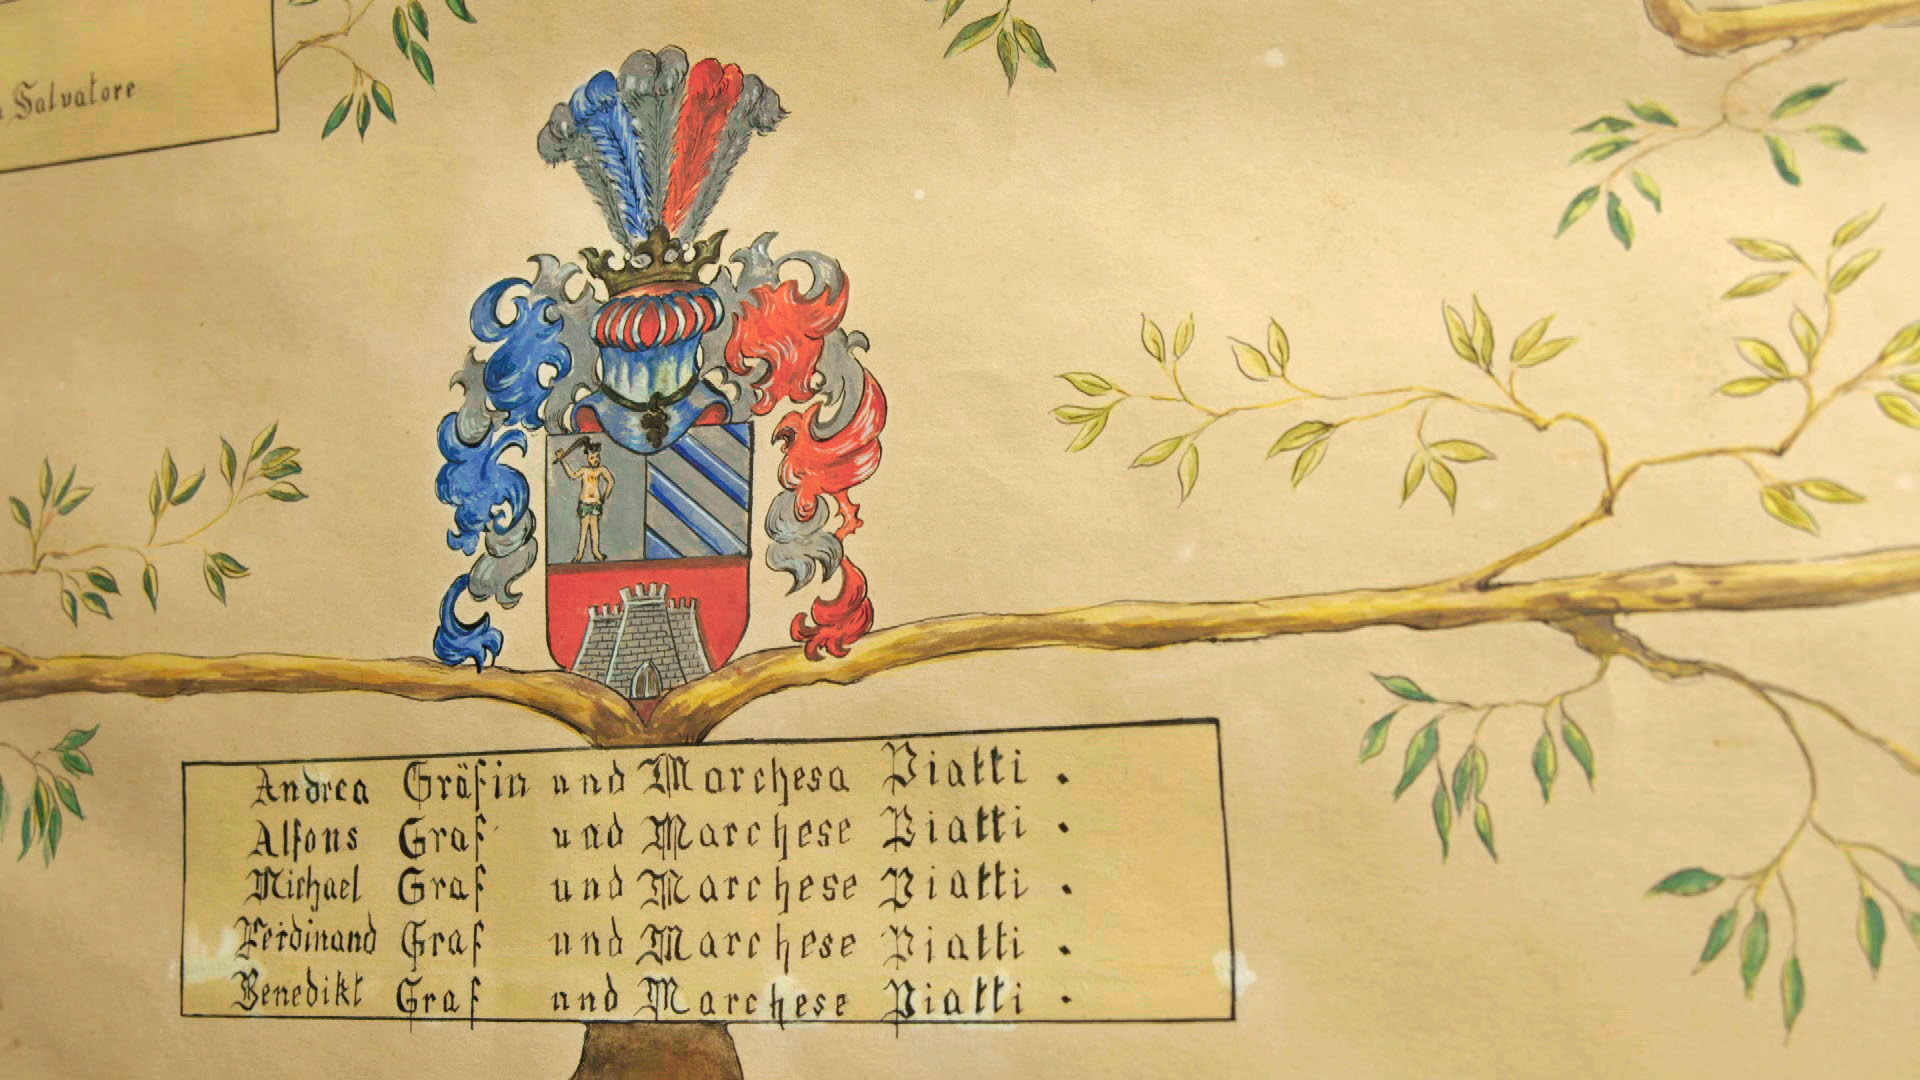 Salvatore
Andrea Gräfin und Marchesa Piatti .
Alfons Graf und Marchese Piatti .
Michael Graf und Marchese Piatti .
Ferdinand Graf und Marchese Piatti .
Benedikt Graf und Marchese Piatti .